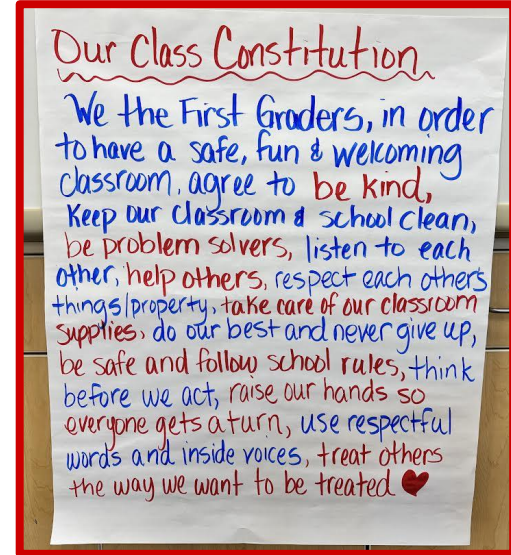 Our Class Constitution
We the First Graders, in order
to have a safe, fun & welcoming
classroom, agree to be kind,
Keep our classroom & school clean,
be problem solvers, listen to each
other, help others, respect each others
things/property, take care of our classroom
supplies, do our best and never give up,
be safe and follow school rules, think
before we act, raise our hands so
everyone gets a turn, use respectful
words and inside voices, treat others
the way we want to be treated